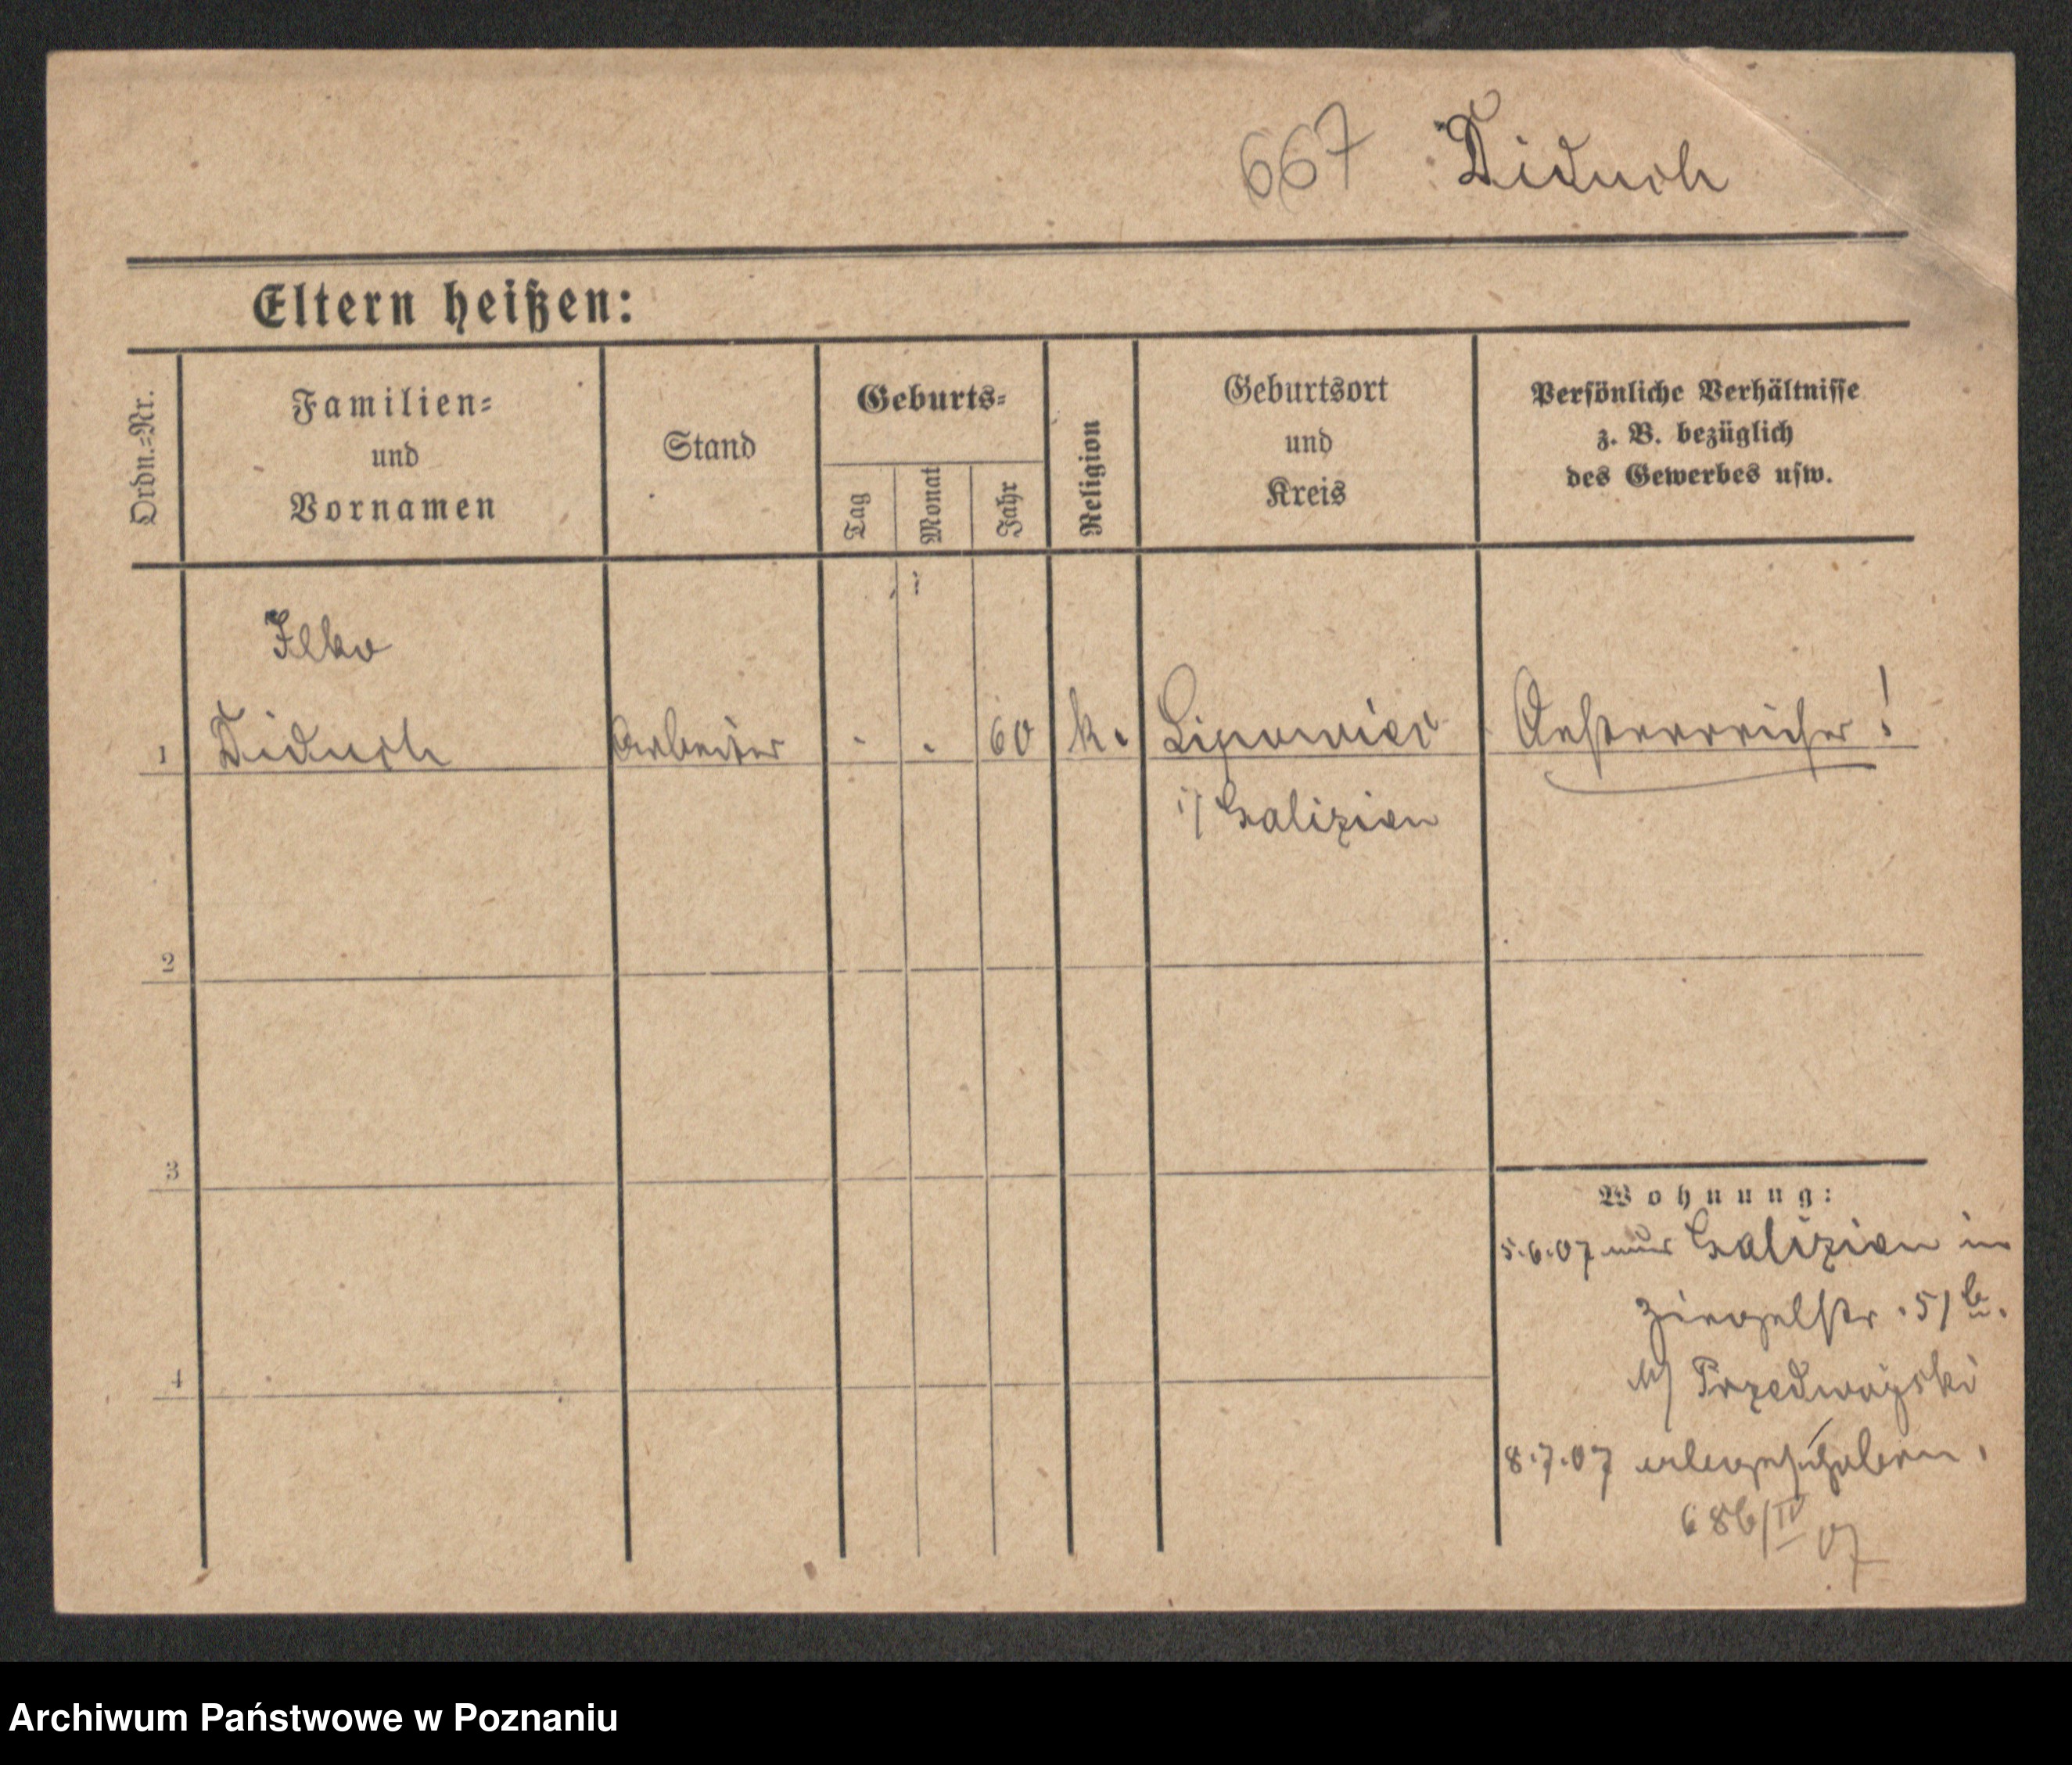 667 Diduch
Eltern heißen:
Ordn.=Nr.
Familien=
und
Vornamen
Stand
Geburts=
Tag
Monat
Jahr
Religion
Geburtsort
und
Kreis
Persönliche Verhältnisse
z. B. bezüglich
des Gewerbes usw.
Ilko
1 Diduch Arbeiter - . 60 k. Lipowice Oesterreicher!
i/ Galizien
2
3
4
Wohnung:
5.6.07 aus Galizien in
Ziegelstr. 51b.
b/ Przedwojski
8.7.07
686/IV 07
Archiwum Państwowe w Poznaniu